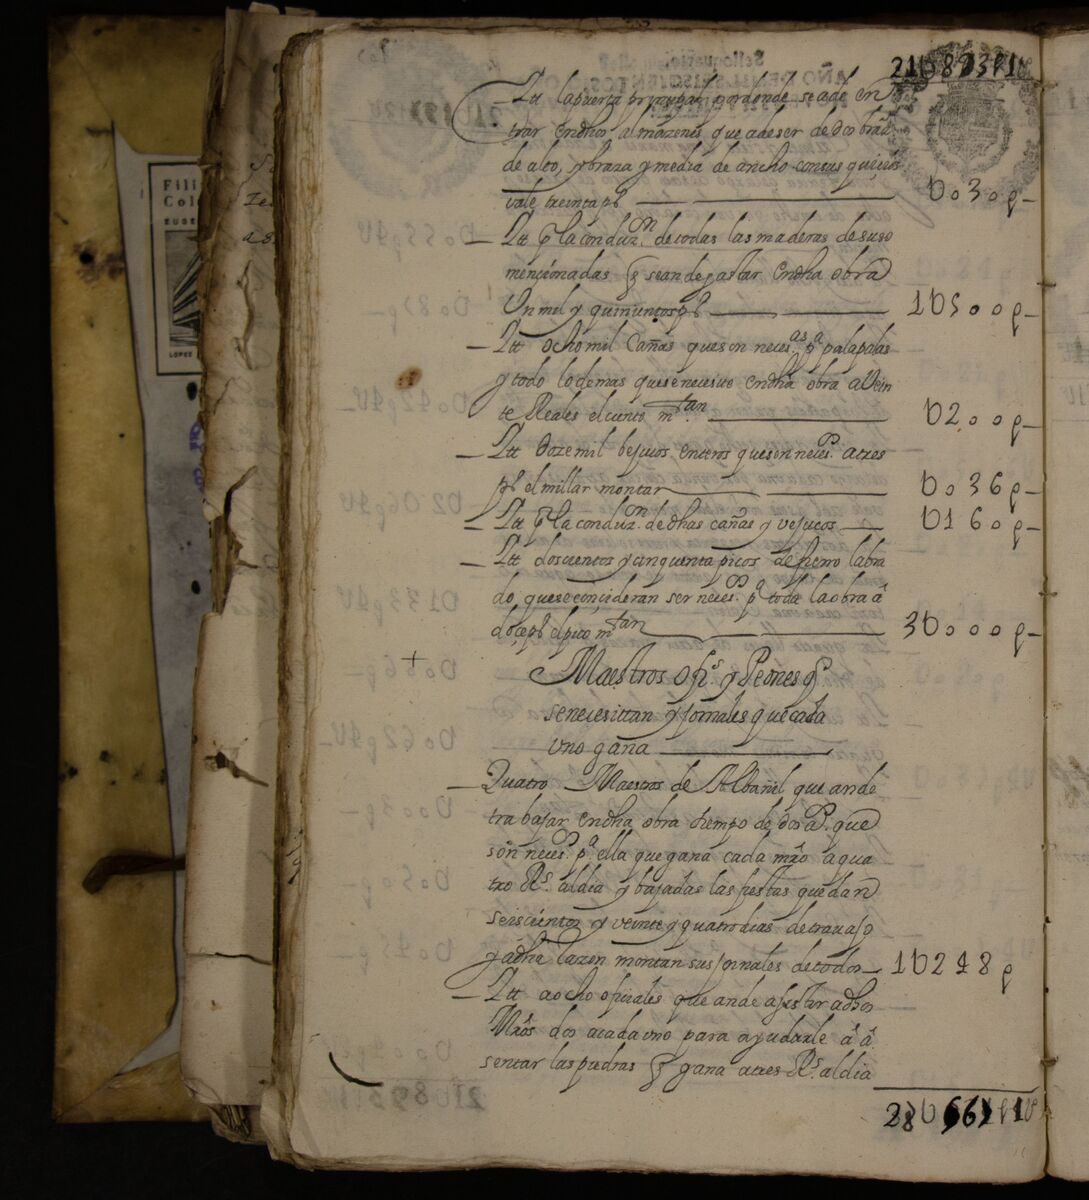 Fili
Colo
EUGE
LOPEZ
Itt la puerta prinzipal por donde se a de en
trar en dhos almazenes que a de ser de dos braᵃ
de alto, y braza y media de ancho con sus quicios
vale treinta pˢ — U030 p
Itt p la conduzᵒⁿ de todas las maderas de suso
mencionadas q sean de gastar en dha obra
Un mil y quinientos pˢ — 1U500 p
Itt ocho mil Cañas que son necesᵃˢ pᵃ palapalas
y todo lo demas que se necesito en dha obra a Vein
te Reales el ciento mᵗᵃⁿ — U200 p
Itt doze mil bejucos enteros que son neces.ᵒˢ a tres
pˢ el millar montan — U036 p
Itt p la conduzᵒⁿ de dhas cañas y vejucos — U160 p
Itt doscientos y cinquenta picos de hierro labra
do, que se concideran ser neces.ᵒˢ pᵃ toda la obra â
doçe pˢ el pico mᵗᵃⁿ — 3U000 p
+
Maestros ofiˢ y Peones qᵉ
se necesittan y Jornales que cada
uno gana
Quatro Maestros de Albañil que an de
trabajar en dha obra tiempo de dos aˢ que
son neces.ᵒˢ pᵃ ella que gana cada mrô a qua
tro Rˢ al dia y bajadas las fiestas quedan
seiscientos y veinte y quatro dias de travajo
y a dha razon montan sus jornales de todos — 1U248 p
Itt a ocho oficiales que an de asistir a dhos
Mrôs dos a cada uno para ayudarle â â
sentar las piedras q gana a tres Rˢ al dia